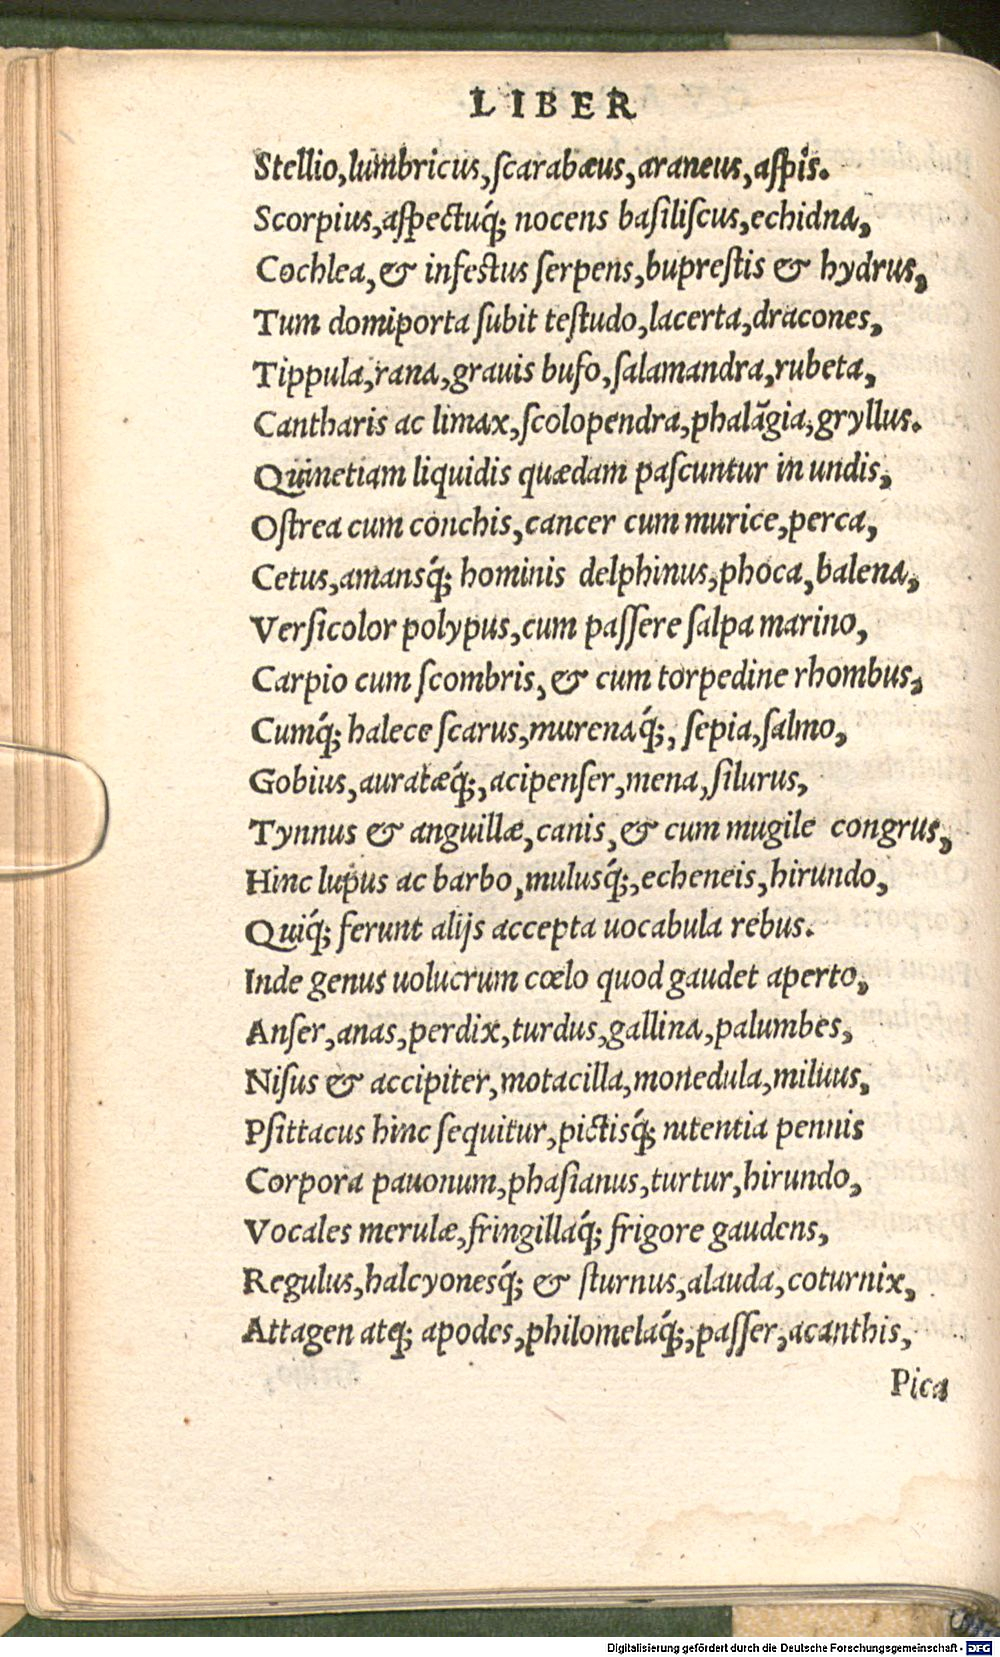 LIBER
Stellio,lumbricus,ſcarabæus,araneus,aſpis.
Scorpius,aſpectuq́; nocens baſiliſcus,echidna,
Cochlea,& infeſtus ſerpens,bupreſtis & hydrus,
Tum domiporta ſubit teſtudo,lacerta,dracones,
Tippula,rana,grauis bufo,ſalamandra,rubeta,
Cantharis ac limax,ſcolopendra,phalāgia,gryllus.
Quinetiam liquidis quædam paſcuntur in undis,
Oſtrea cum conchis,cancer cum murice,perca,
Cetus,amansq́; hominis delphinus,phoca,balena,
Verſicolor polypus,cum paſſere ſalpa marino,
Carpio cum ſcombris,& cum torpedine rhombus,
Cumq́; halece ſcarus,murenaq́;, ſepia,ſalmo,
Gobius,auratæq́;,acipenſer,mena,ſilurus,
Tynnus & anguillæ,canis,& cum mugile congrus,
Hinc lupus ac barbo,mulusq́;,echeneis,hirundo,
Quiq́; ferunt alijs accepta uocabula rebus.
Inde genus uolucrum cœlo quod gaudet aperto,
Anſer,anas,perdix,turdus,gallina,palumbes,
Niſus & accipiter,motacilla,monedula,miluus,
Pſittacus hinc ſequitur,pictisq́; nitentia pennis
Corpora pauonum,phaſianus,turtur,hirundo,
Vocales merulæ,fringillaq́; frigore gaudens,
Regulus,halcyonesq́; & ſturnus,alauda,coturnix,
Attagen atq; apodes,philomelaq́;,paſſer,acanthis,
Pica
Digitalisierung gefördert durch die Deutsche Forschungsgemeinschaft - DFG